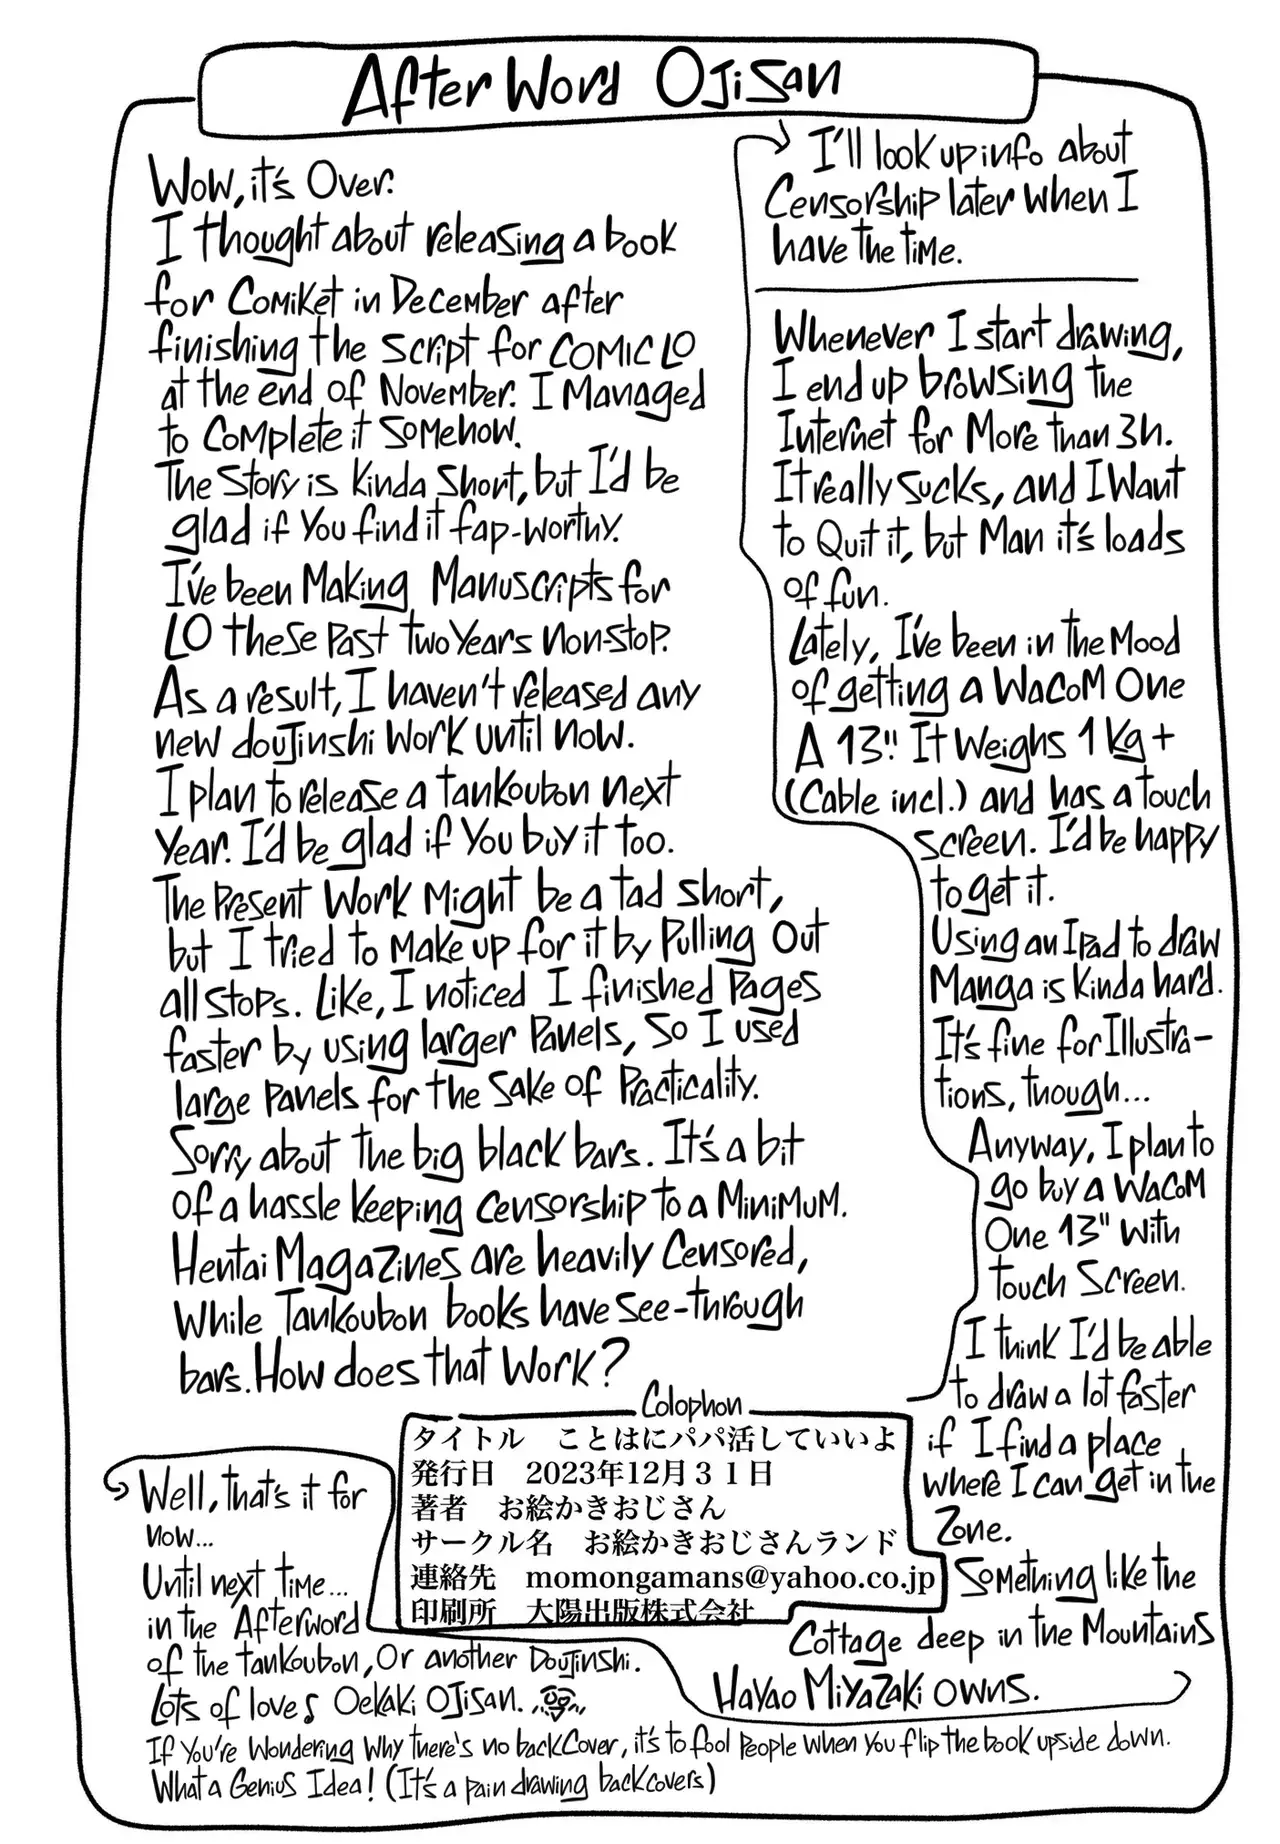 AfterWord Ojisan
Wow, it's Over.
I thought about releasing a book
for Comiket in December after
finishing the script for COMIC LO
at the end of November. I Managed
to complete it somehow.
The Story is kinda short, but I'd be
glad if You find it fap-worthy.
I've been Making Manuscripts for
LO these past two Years non-stop.
As a result, I haven't released any
new doujinshi work until now.
I plan to release a tankoubon next
Year. I'd be glad if You buy it too.
The Present Work Might be a tad short,
but I tried to Make up for it by Pulling Out
all stops. Like, I noticed I finished Pages
faster by using larger Panels, So I used
large Panels for the sake of Practicality.
Sorry about the big black bars. It's a bit
of a hassle keeping censorship to a Minimum.
Hentai Magazines are heavily Censored,
While Tankoubon books have see-through
bars. How does that work?
I'll look up info about
Censorship later when I
have the time.
Whenever I start drawing,
I end up browsing the
Internet for More than 3h.
It really sucks, and I Want
to Quit it, but Man it's loads
of fun.
Lately, I've been in the Mood
of getting a Wacom One
A 13"! It Weighs 1 Kg +
(Cable incl.) and has a touch
screen. I'd be happy
to get it.
Using an Ipad to draw
Manga is kinda hard.
It's fine for Illustra-
tions, though...
Anyway, I plan to
go buy a Wacom
One 13" With
touch Screen.
I think I'd be able
to draw a lot faster
if I find a place
where I can get in the
Zone.
Something like the
Cottage deep in the Mountains
Hayao Miyazaki owns.
Well, that's it for
now...
Until next time...
in the Afterword
of the tankoubon, Or another Doujinshi.
Lots of love, Oekaki Ojisan.
If You're Wondering Why there's no backcover, it's to fool people when you flip the book upside down.
What a Genius Idea! (It's a pain drawing backcovers)
Colophon
タイトル　ことはにパパ活していいよ
発行日　2023年12月３１日
著者　お絵かきおじさん
サークル名　お絵かきおじさんランド
連絡先　momongamans@yahoo.co.jp
印刷所　大陽出版株式会社